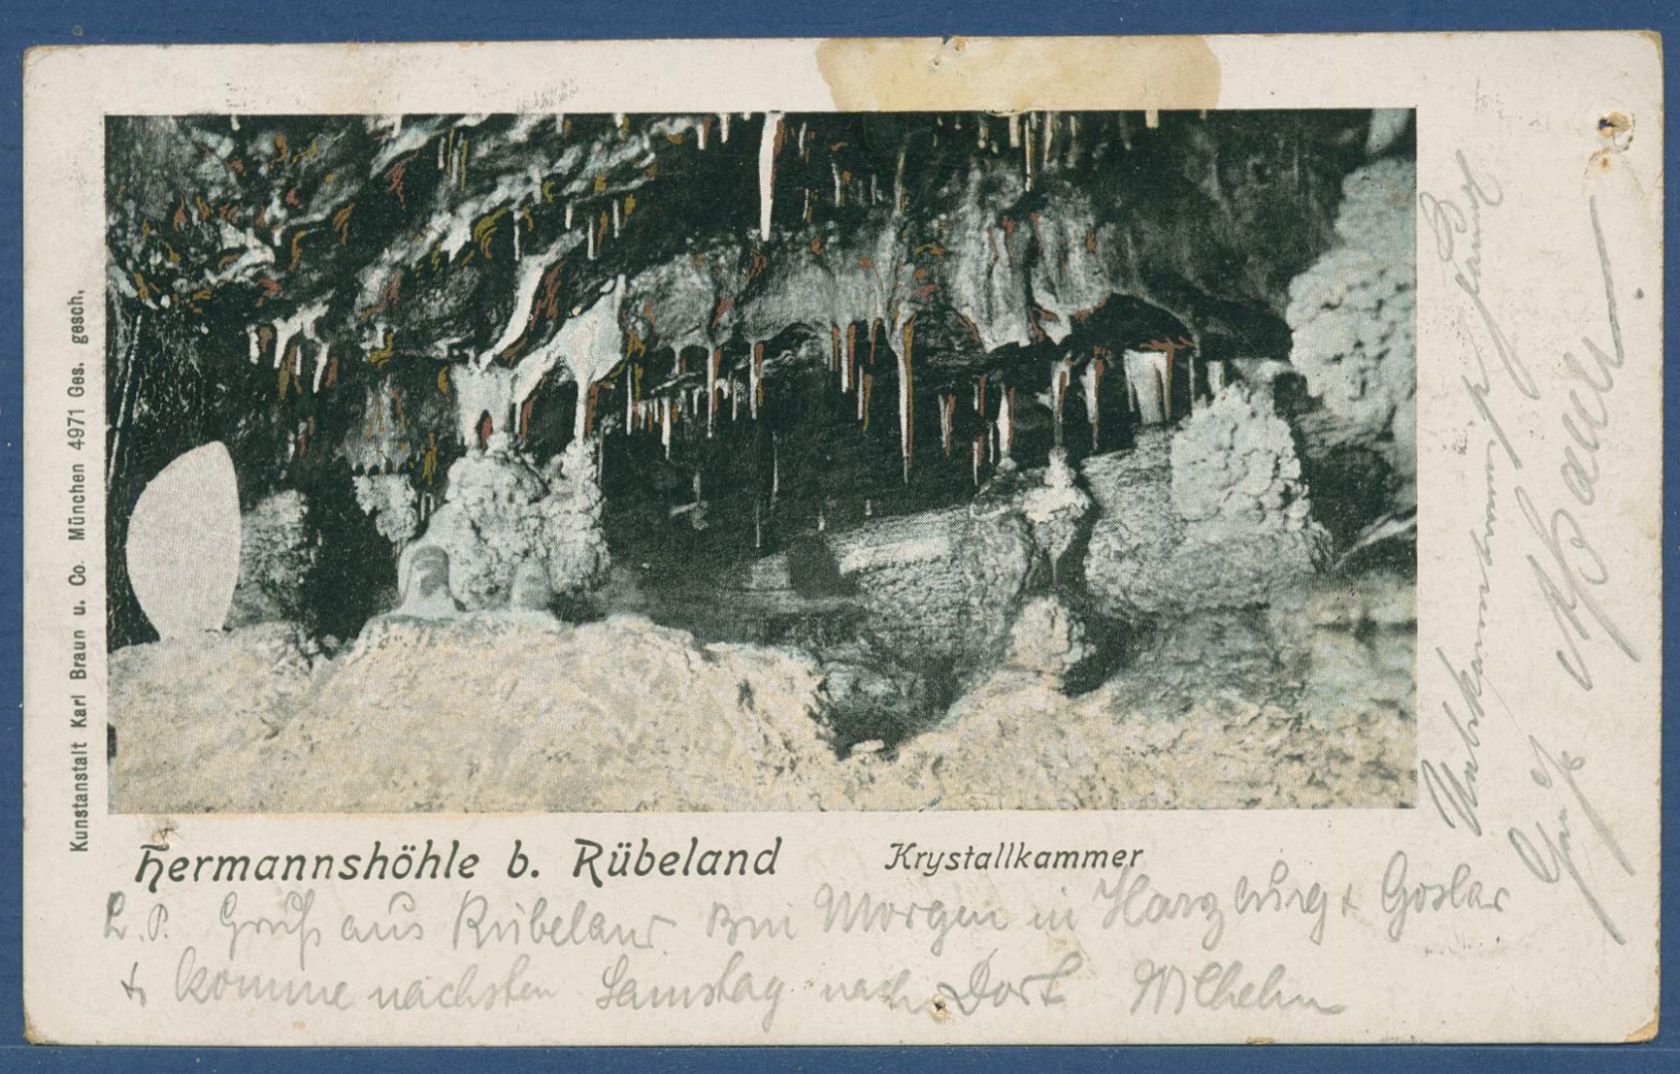 Kunstanstalt Karl Braun u. Co. München 4971 Ges. gesch.
Hermannshöhle b. Rübeland Krystallkammer
L. P. Gruß aus Rübeland Bin Morgen in Harzburg + Goslar
+ komme nächsten Samstag nach Dort Wilhelm
Unbekannterweise
Gruß